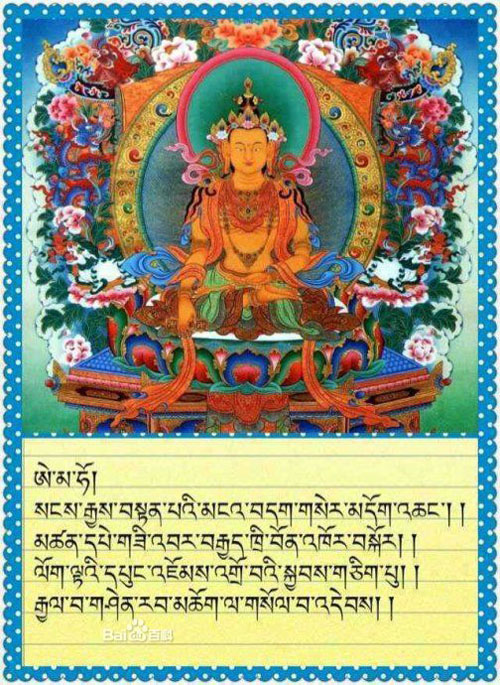 ཨེ་མ་ཧོ།
སངས་རྒྱས་བསྟན་པའི་མངའ་བདག་གསེར་མདོག་འཆང་། །
མཚན་དཔེ་གཟི་འབར་བརྒྱད་ཁྲི་བོན་འཁོར་བསྐོར། །
ལོག་ལྟའི་དཔུང་འཇོམས་འགྲོ་བའི་སྐྱབས་གཅིག་པུ། །
རྒྱལ་བ་གཤེན་རབ་མཆོག་ལ་གསོལ་བ་འདེབས། །
Bai百科